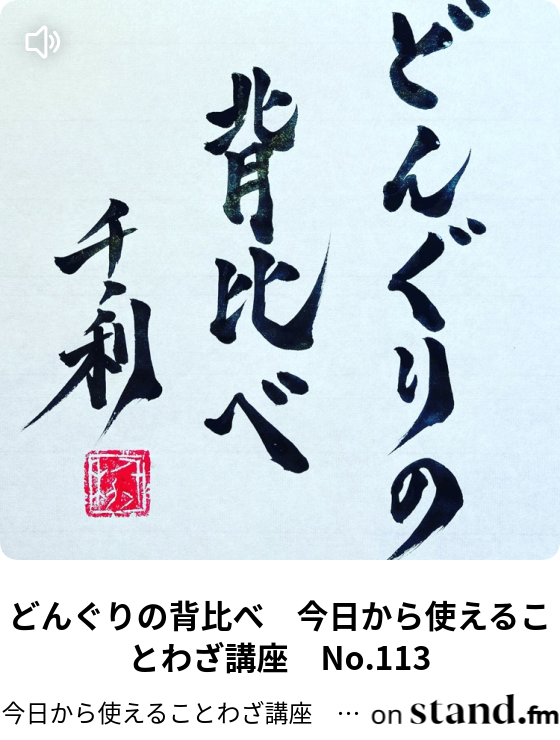 どんぐりの
背比べ
千利
どんぐりの背比べ　今日から使えるこ
とわざ講座　No.113
今日から使えることわざ講座　… on stand.fm